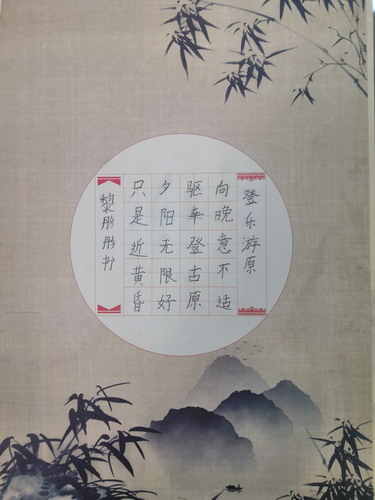 登乐游原
向晚意不适
驱车登古原
夕阳无限好
只是近黄昏
黎彤彤抄